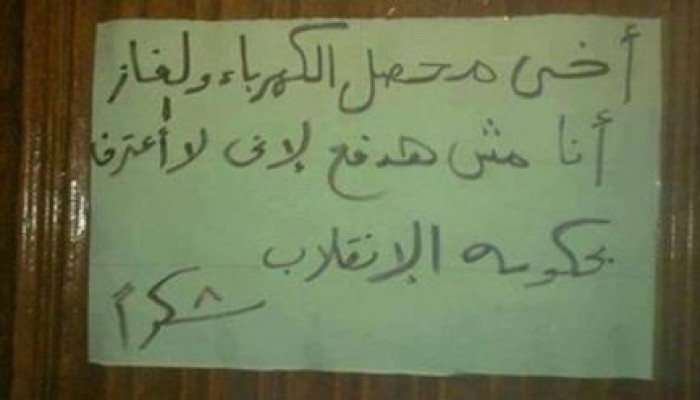 أخى محصل الكهرباء ولغاز
أنا مش هدفع لإنى لا أعترف
بحكومه الإنقلاب
شكراً